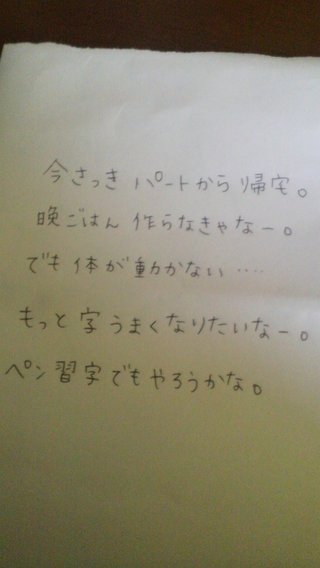 今さっきパートから帰宅。
晩ごはん作らなきゃなー。
でも体が動かない‥‥
もっと字うまくなりたいなー。
ペン習字でもやろうかな。